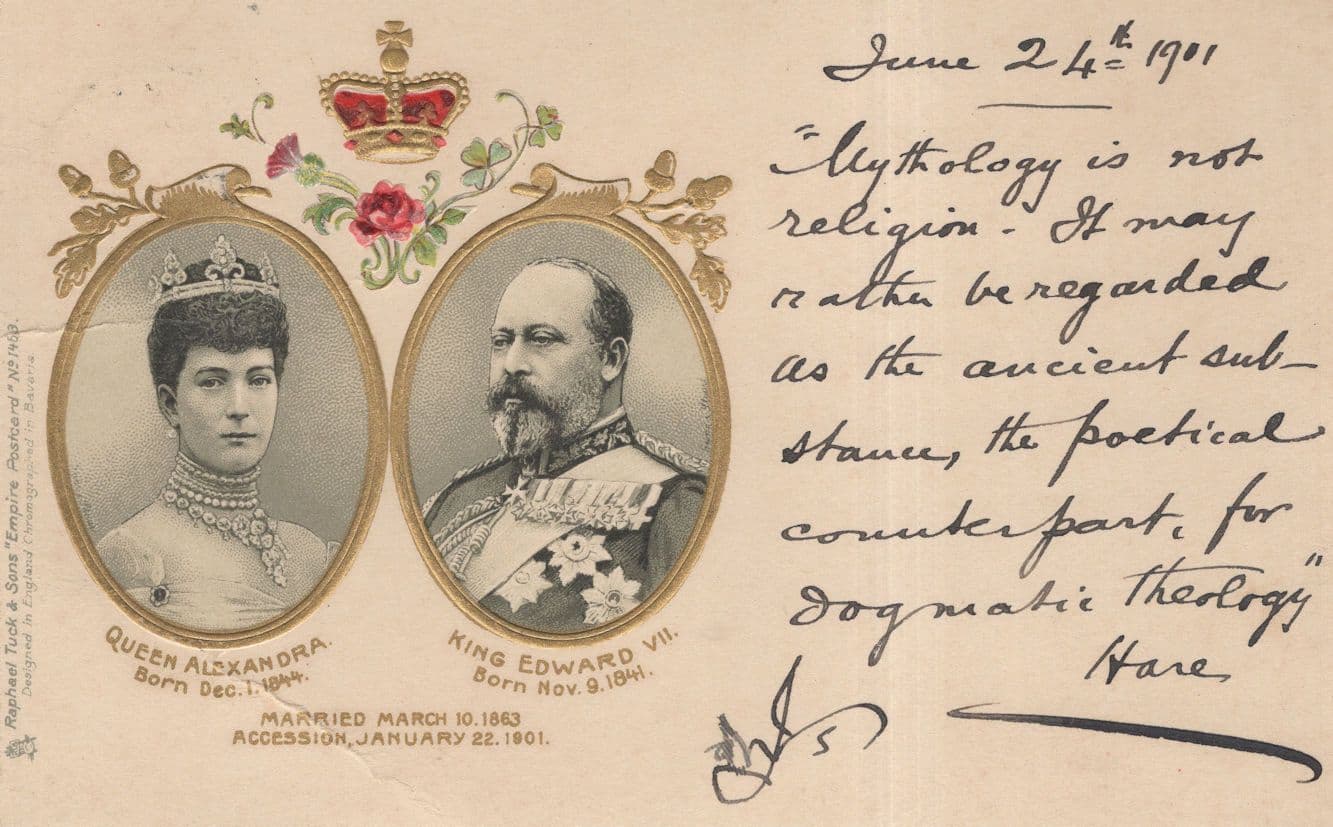 June 24th 1901
"Mythology is not
religion - It may
rather be regarded
as the ancient sub-
stance, the poetical
counterpart, for
dogmatic theology"
Hare
QUEEN ALEXANDRA.
Born Dec. 1. 1844.
KING EDWARD VII.
Born Nov. 9. 1841.
MARRIED MARCH 10. 1863
ACCESSION, JANUARY 22. 1901.
Raphael Tuck & Sons "Empire Postcard" No 1463.
Designed in England Chromographed in Bavaria.